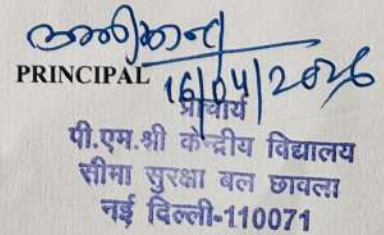 PRINCIPAL
16/04/2026
प्राचार्य
पी.एम.श्री केन्द्रीय विद्यालय
सीमा सुरक्षा बल छावला
नई दिल्ली-110071